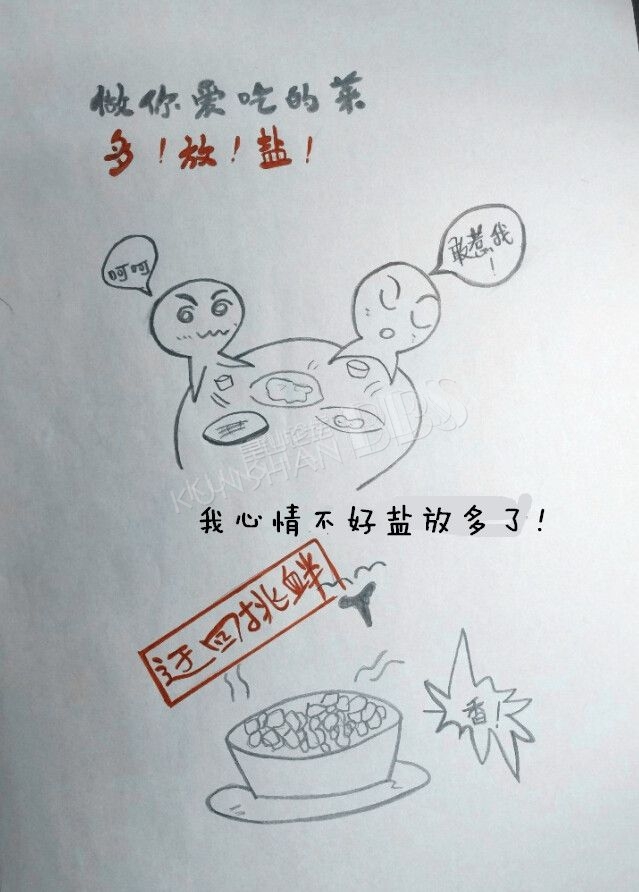 做你爱吃的菜
多！放！盐！
呵呵
敢惹我！
KKJIANSHAN BBS
我心情不好盐放多了！
迂回挑鲜
香！